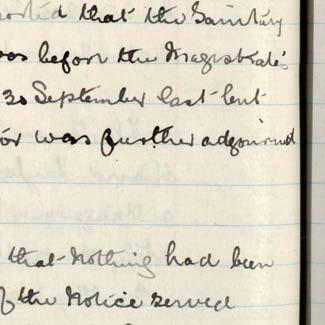 that the Sanitary
was before the Magistrates
30 September last but
was further adjourned
that Nothing had been
of the Notice served